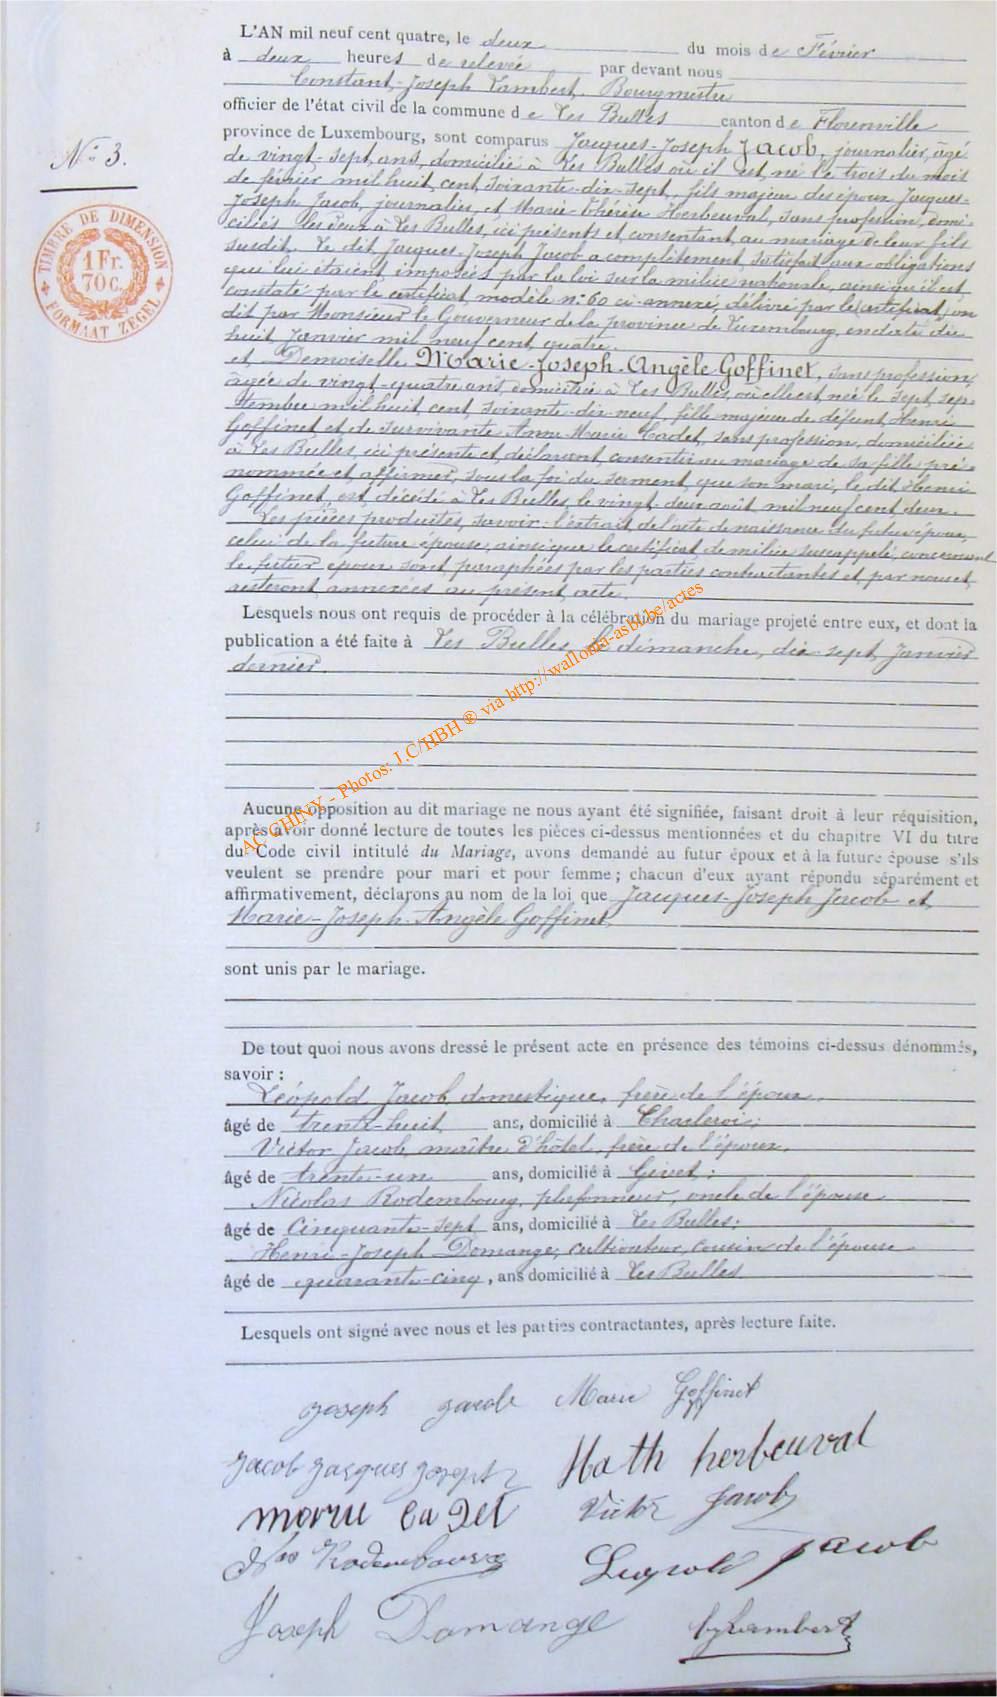 L'AN mil neuf cent quatre, le deux du mois de Février
à deux heures de relevée par devant nous
Constant-Joseph Lambert, Bourgmestre
officier de l'état civil de la commune de Les Bulles canton de Florenville
province de Luxembourg, sont comparus Jacques-Joseph Jacob, journalier, âgé
de vingt-sept ans, domicilié à Les Bulles où il est né le trois du mois
de février mil huit cent soixante-dix-sept, fils majeur des époux Jacques-
Joseph Jacob, journalier, et Marie-Thérèse Herbeuval, sans profession, domi-
ciliés les deux à Les Bulles, ici présents et consentant au mariage de leur fils
susdit. Le dit Jacques-Joseph Jacob a complètement satisfait aux obligations
qui lui étaient imposées par la loi sur la milice nationale, ainsi qu'il est
constaté par le certificat, modèle n° 60 ci-annexé, délivré par le (certificat) on
dit par Monsieur le Gouverneur de la province de Luxembourg, en date du
huit Janvier mil neuf cent quatre.
et Demoiselle Marie-Joseph-Angèle Goffinet, sans profession,
âgée de vingt-quatre ans, domiciliée à Les Bulles, où elle est née le sept sep-
tembre mil huit cent soixante-dix-neuf, fille majeure de défunt Henri
Goffinet et de survivante Anne Marie Cadet, sans profession, domiciliée
à Les Bulles, ici présente et déclarant consentir au mariage de sa fille pré-
nommée et affirmer, sous la foi du serment, que son mari, le dit Henri
Goffinet, est décédé à Les Bulles le vingt-deux août mil neuf cent deux.
Les pièces produites, savoir: l'extrait de l'acte de naissance du futur époux,
celui de la future épouse, ainsi que le certificat de milice susrappelé, concernant
le futur époux sont paraphées par les parties contractantes et par nous et
resteront annexées au présent acte.
Lesquels nous ont requis de procéder à la célébration du mariage projeté entre eux, et dont la
publication a été faite à Les Bulles, le dimanche, dix-sept Janvier
dernier
N° 3.
TIMBRE DE DIMENSION
1 Fr.
70 c.
FORMAAT ZEGEL
AC CHINY - Photos: J.C/HBH ® via http://wallonia-asbl.be/actes
Aucune opposition au dit mariage ne nous ayant été signifiée, faisant droit à leur réquisition,
après avoir donné lecture de toutes les pièces ci-dessus mentionnées et du chapitre VI du titre
du Code civil intitulé du Mariage, avons demandé au futur époux et à la future épouse s'ils
veulent se prendre pour mari et pour femme ; chacun d'eux ayant répondu séparément et
affirmativement, déclarons au nom de la loi que Jacques-Joseph Jacob et
Marie-Joseph-Angèle Goffinet,
sont unis par le mariage.
De tout quoi nous avons dressé le présent acte en présence des témoins ci-dessus dénommés,
savoir :
Léopold Jacob, domestique, frère de l'époux,
âgé de trente-huit ans, domicilié à Charleroi ;
Victor Jacob, maître d'hôtel, frère de l'époux,
âgé de trente-un ans, domicilié à Givet ;
Nicolas Rodembourg, plafonneur, oncle de l'épouse
âgé de cinquante-sept ans, domicilié à Les Bulles ;
Henri-Joseph Domange, cultivateur, cousin de l'épouse
âgé de quarante-cinq, ans domicilié à Les Bulles
Lesquels ont signé avec nous et les parties contractantes, après lecture faite.
Joseph Jacob Marie Goffinet
Jacob Jacques Joseph Math herbeuval
marie Cadet Victor Jacob
Nas Rodembourg Léopold Jacob
Joseph Domange CjLambert